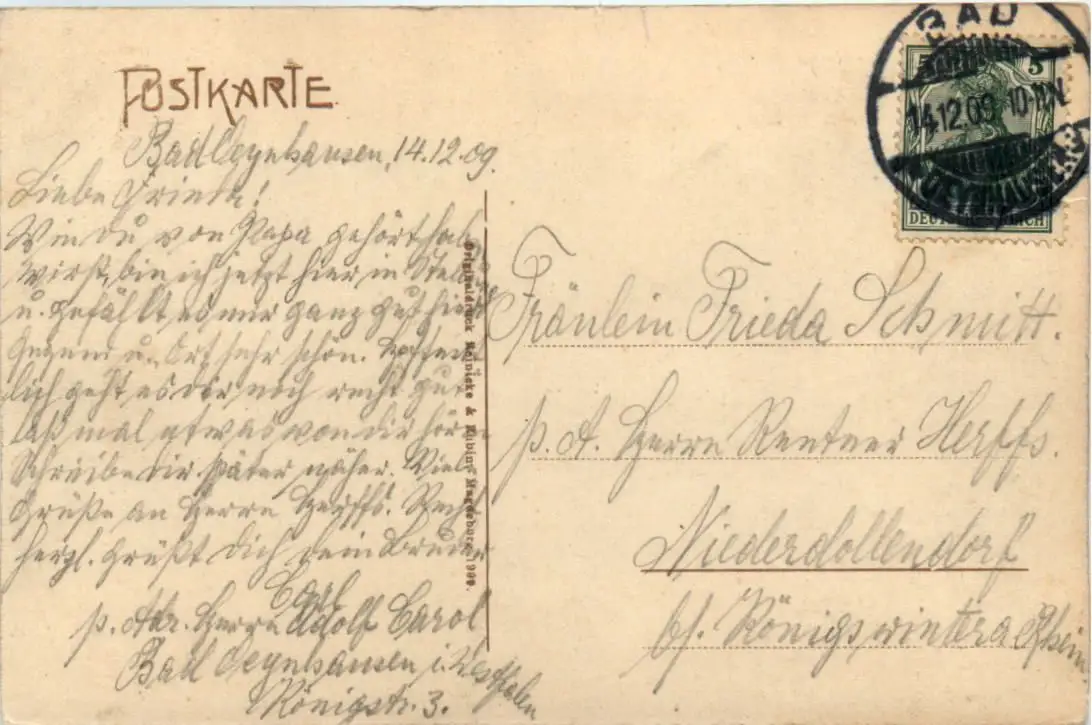 POSTKARTE
Bad Oeynhausen, 14.12.09.
Liebe Frieda!
Wie du von Papa gehört hab
wirst, bin ich jetzt hier in Stell
u. gefällt es mir ganz gut hier
Gegend u. Ort sehr schön. Hoffent
lich geht es dir noch recht gut
laß mal etwas von dir hören
Schreibe dir später näher. Viele
Grüße an Herrn Herffs. Recht
herzl. grüßt dich dein Bruder
Carl
p. Adr. Herrn Adolf Carol
Bad Oeynhausen i. Westfalen
Königstr. 3.
Originaldruck Reinicke & Rubin, Magdeburg 1909.
BAD
14.12.09 10-11 V
OEYNHAUSEN
5 5
DEUTSCHES REICH
Fräulein Frieda Schmitt.
p. A. Herrn Rentner Herffs.
Niederdollendorf
bf. Königswinter a Rhein